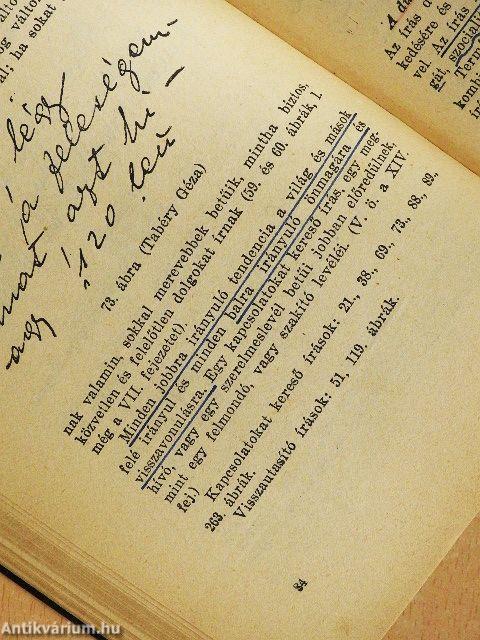 légy
á feleségem-
azt hi-
agy 1120 leü
73. ábra (Tabéry Géza)
nak valamin, sokkal merevebbek betűik, mintha biztos,
közvetlen és felelőtlen dolgokat írnak (59. és 60. ábrák, l.
még a VII. fejezetet).
Minden jobbra irányuló tendencia a világ és mások
felé irányul és minden balra irányuló önmagára és
visszavonulásra. Egy kapcsolatokat kereső írás, egy meg-
hívó, vagy egy szerelmeslevél betűi jobban előredülnek,
mint egy felmondó, vagy szakító levéléi. (V. ö. a XIV.
fej.)
Kapcsolatokat kereső írások: 21., 38., 69., 73., 88., 89.,
263. ábrák.
Visszautasító írások: 51, 119. ábrák.
84
og
al; ha sokat
Az írás
kedésére és
vel. Az
gát,
Term
Antikvárium.hu